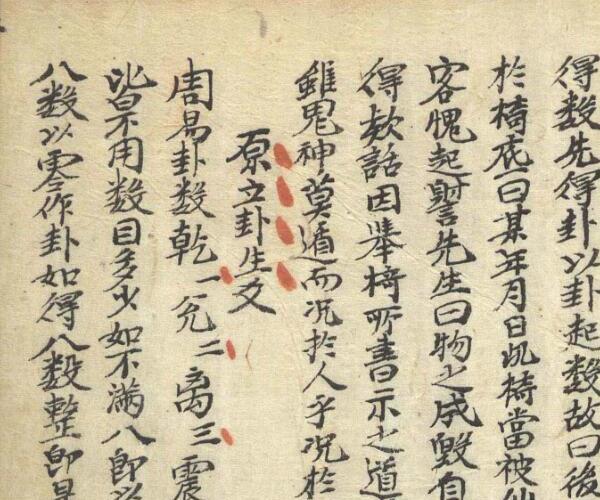 得数先得卦以卦起数故曰後
於椅底曰某年月日此椅當被仙
客愧起謝先生曰物之成毀有
得欸話因舉椅所書示之道
雖鬼神莫遁而况於人乎况於
原立卦生爻
周易卦数乾一兊二离三震
此皆不用数目多少如不滿八即以
八数以零作卦如得八数整即是